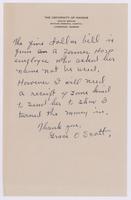 THE UNIVERSITY OF KANSAS
The five dollar bill is
from a former Hosp
employee who asked her
name not be used.
However I will need
a receipt of some kind
to send her to show I
turned the money in.
Thank you,
Grace O. Scott.